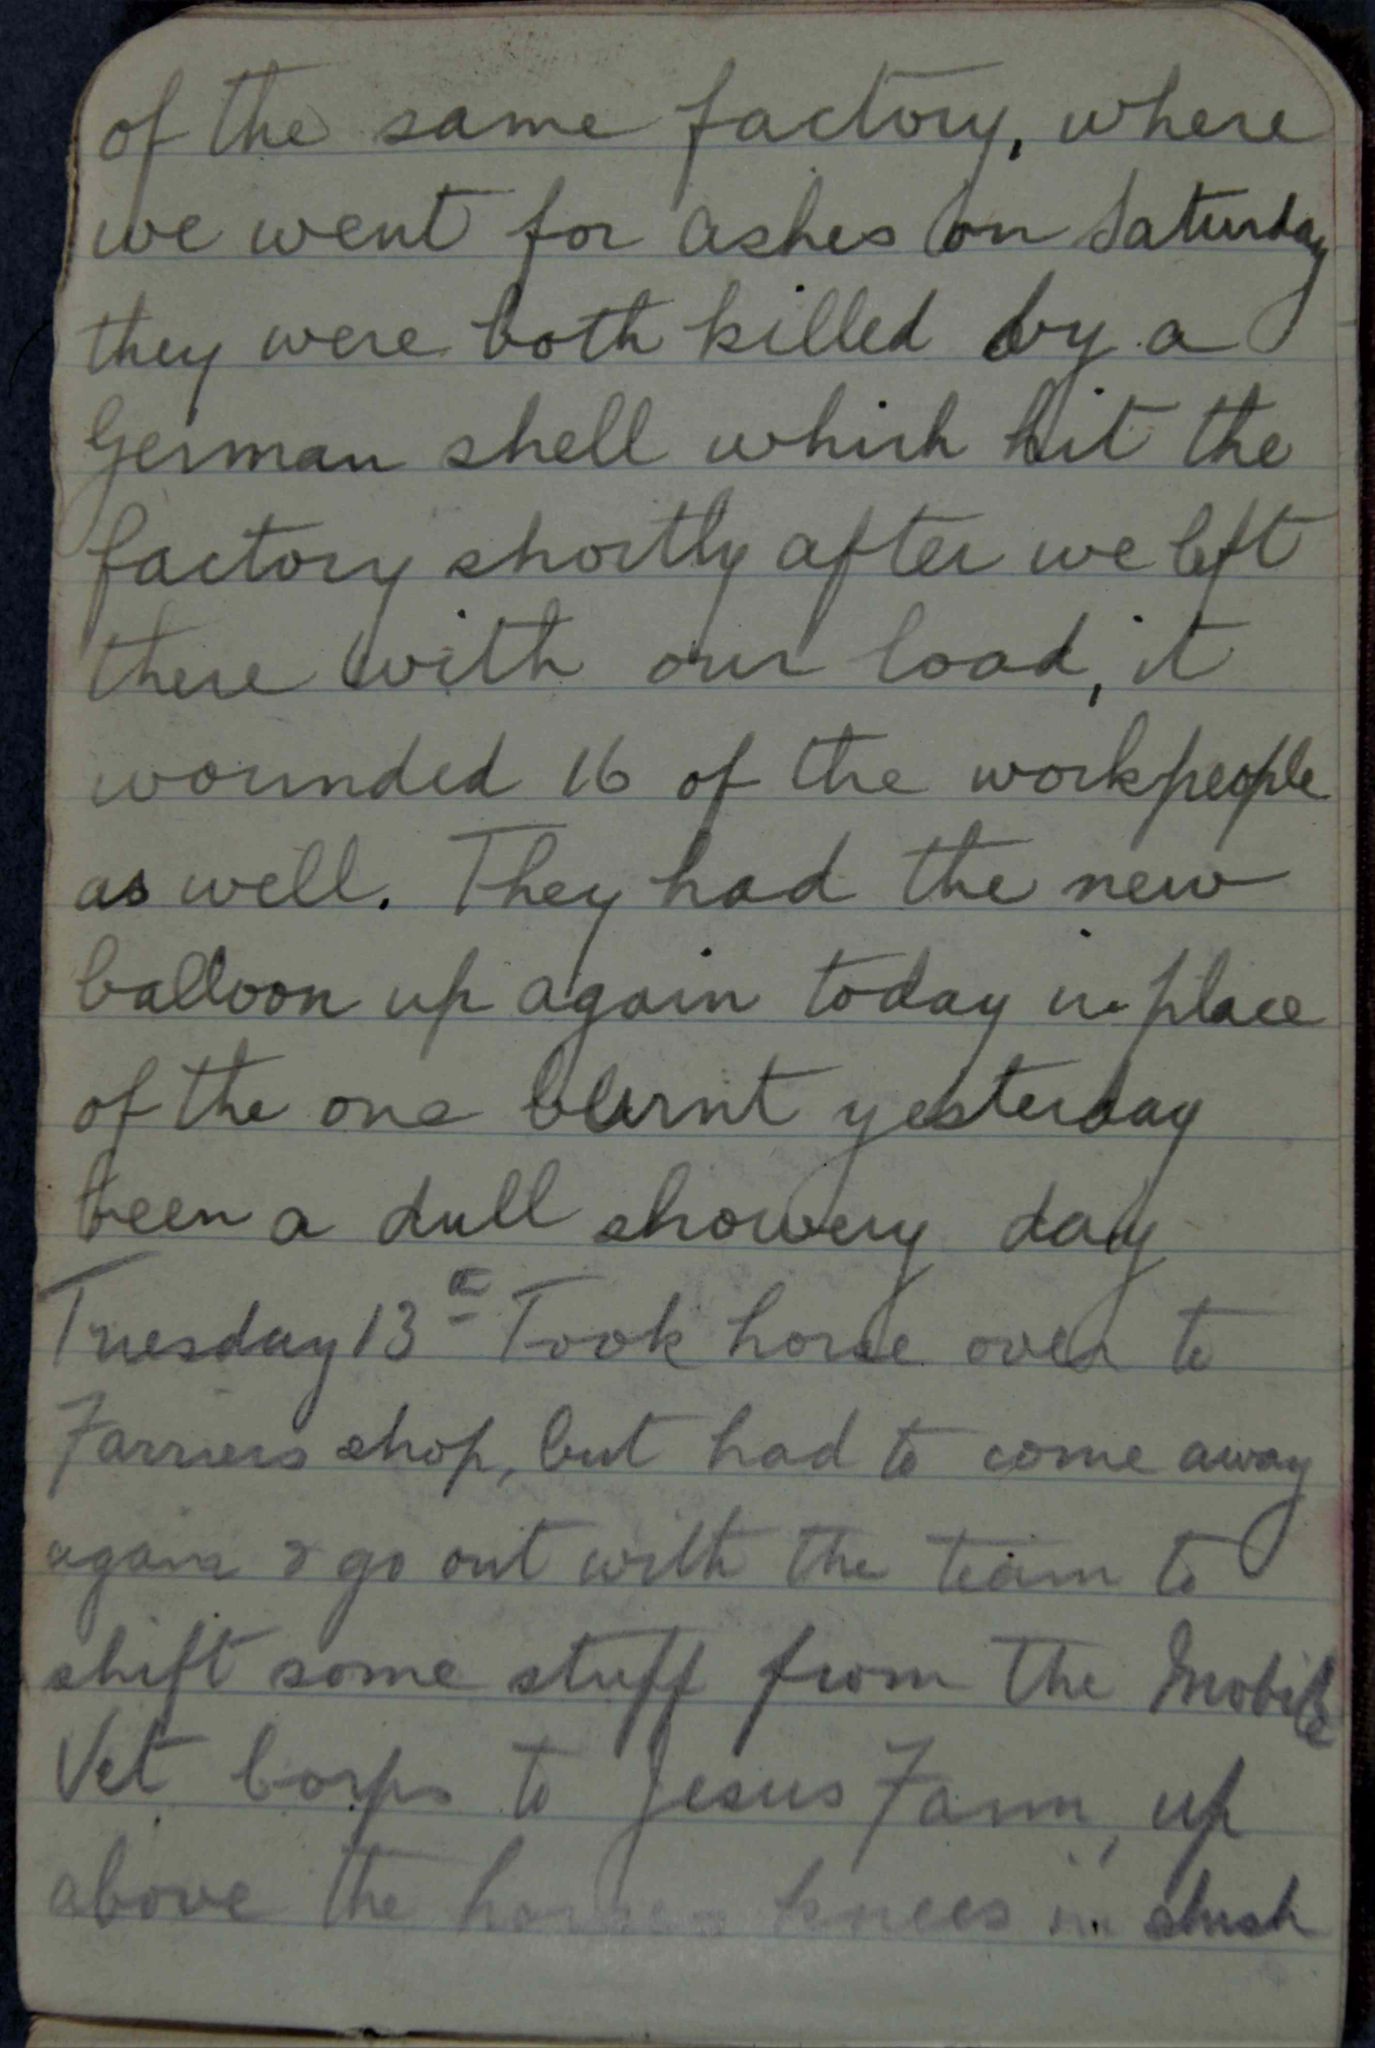 of the same factory, where
we went for ashes on Saturday
they were both killed by a
German shell which hit the
factory shortly after we left
there with our load, it
wounded 16 of the workpeople
as well. They had the new
balloon up again today in place
of the one burnt yesterday
been a dull showery day
Tuesday 13th Took horse over to
Farriers shop, but had to come away
again & go out with the team to
shift some stuff from the Mobile
Vet Corps to Jesus Farm, up
above the horses knees in slush